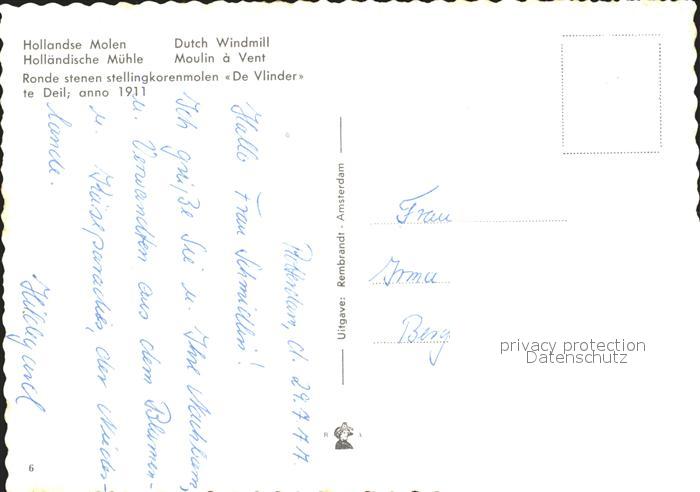 Hollandse Molen Dutch Windmill
Holländische Mühle Moulin à Vent
Ronde stenen stellingkorenmolen «De Vlinder»
te Deil; anno 1911
Rotterdam, d. 29.7.77.
Hallo Frau Schmidlin!
Ich grüße Sie u. Ihre Nachbarn,
u. Verwandten aus dem Blumen-
u. Käseparadies, der Nieder-
lande.
Hildegard
Uitgave: Rembrandt - Amsterdam
R A
Frau
Irma
Berg
privacy protection
Datenschutz
6